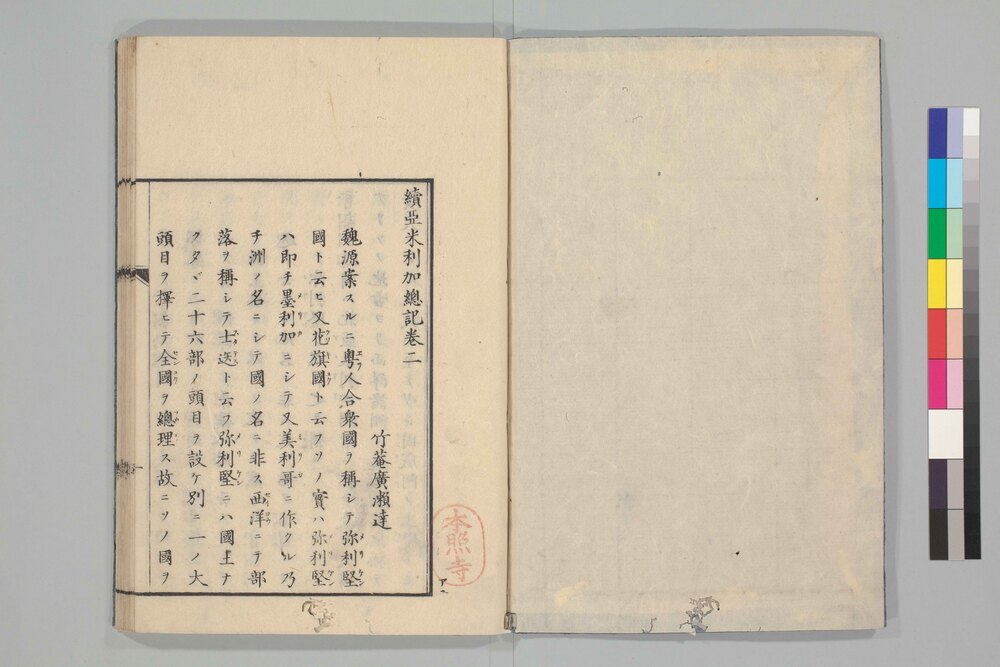 續亞米利加總記卷二
竹菴廣瀨達
魏源案スルニ粵人合衆國ヲ稱シテ弥利堅
國ト云ヒ又花旗國ト云フソノ實ハ弥利堅
ハ即チ墨利加ニシテ又美利哥ニ作クル乃
チ洲ノ名ニシテ國ノ名ニ非ス西洋ニテ部
落ヲ稱シテ士迭ト云フ弥利堅ニハ國主ナ
クタヾ二十六部ノ頭目ヲ設ケ別ニ一ノ大
頭目ヲ擇ヒテ全國ヲ總理ス故ニソノ國ヲ
本照寺